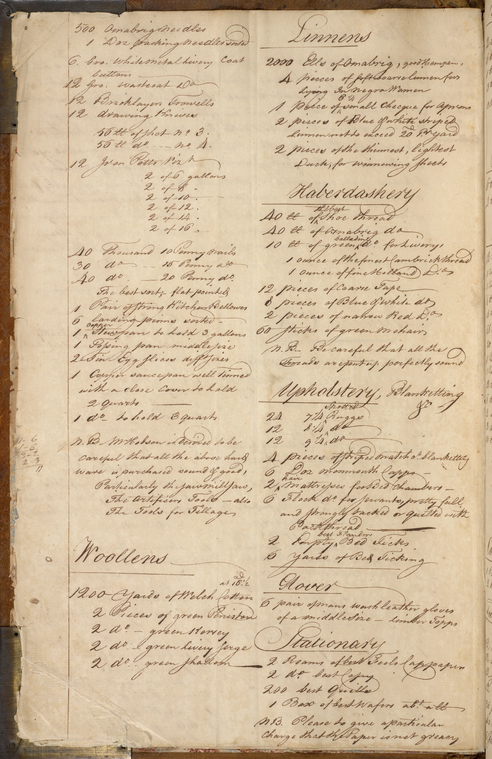 500 Osnabrig Needles
1 Doz packing Needles
6 Gro. White Metal Livery Coat
buttons
12 Gro. wastcoat Do
12 Bricklayers Trowells
12 Drawing Knives
56 lb of shot No 3.
56 lb do — No 4.
12 Iron Pots Vizt
2 of 6 gallons
2 of 8
2 of 10
2 of 12
2 of 14
2 of 16
40 Thousand 10 Penny Nails
30 do — 15 Penny do
40 do — 20 Penny do
The best sort, flat points
1 Pair of strong Kitchen Bellows
6
1 Copper Stewpan to hold 3 gallons
1 middle size
2 Egg Slices difft sizes
1 Copper saucepan well Tinned
with a close Cover to hold
2 Quarts
1 do to hold 3 Quarts
N.B. is desired to be
careful that all the above hard
ware is purchased sound & good,
Particularly the
The Artificers Tools — also
The Tools for Tillage
Woollens
1200 Yards of Welch Cotton
2 Pieces of green
2 do — green
2 do — green Livery Serge
2 do green Shalloon
Linnens
2000 Ells of Osnabrig,
4 pieces of linnen for
Lying In Negro Women
1 Piece of small Checque for Aprons
2 pieces of Blue & white striped
Linnen not to exceed 20 Pr yard
2 pieces of the thinnest, lightest
Duck, for winnowing Sheets
Haberdashery
40 lb of Shoe thread
40 lb of Osnabrig do
10 lb of green do for Liverys
1 ounce of the finest Cambrick thread
1 ounce of fine Holland Do
12 pieces of Coarse Tape
6 pieces of Blue & white do
2 pieces of Do
60 sticks of green Mohair
N.B. Be careful that all the
Threads are put up perfectly sound
Upholstery, Blanketting
&c
24 7/4 Spotted Ruggs
12
12
4 pieces of striped match Blanketting
6 Doz Monmouth Capps
2 hair Mattrasses for Bed Chambers
6 Flock do for Servants, pretty full,
and strongly tacked or quilted with
Packthread
2 Empty Bed Ticks
6 Yards of Bed Ticking
Glover
6 pair of mans wash leather gloves
of a middle size — Limber Topps
Stationary
2 Reams of best Fools Cap paper
2 do best
200 best Quills
1 Box of best Wafers
N.B. Please to give a particular
Charge that the Paper is not greasy